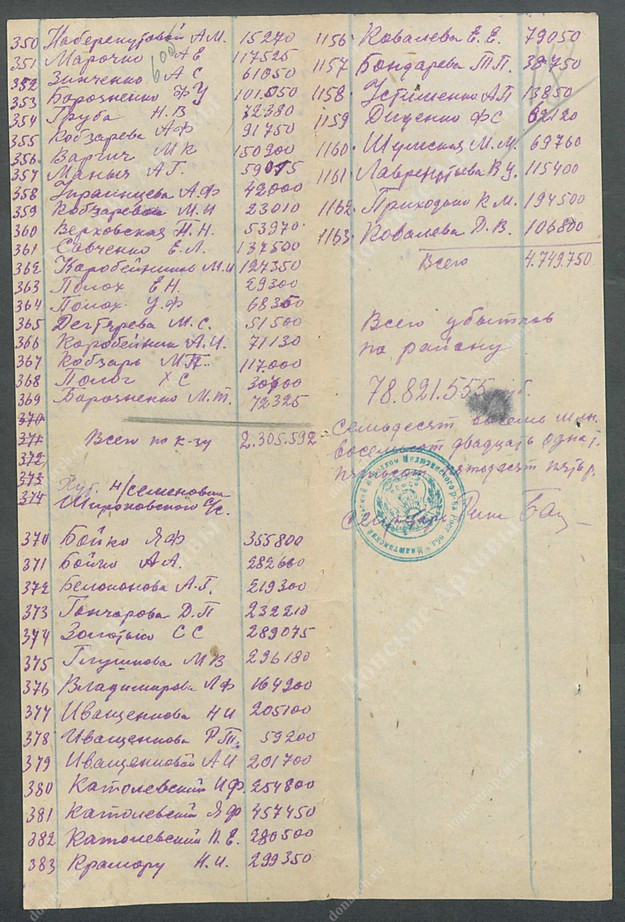 350 Наберекутовой А.М. 15270
351 Марочко А Е 117525
352 Зинченко А С 61050
353 Борозненко Ф У 101050
354 Груба Н.В 72380
355 Кобзарева А Ф 91750
356 Варич М К 150200
357 Маныч А Г. 59075
358 Украинцева А.Ф 42000
359 Кобзарева М.И 23010
360 Верховская Н.Н. 53970
361 Савченко Е.Л. 137500
362 Коробейников М.И 127350
363 Полох Е Н. 29300
364 Полох У.Ф 68300
365 Дегтярева М.С. 51500
366 Коробейник А.И. 71130
367 Кобзарь М П. 117.000
368 Полог Х С 30600
369 Борозненко М.Т. 72325
370
371 Всего по к-зу 2.305.592
372
373 Хут. Н/Семеновка
374 Широковского С/с.
370 Бойко Я Ф 355800
371 Бойко А А. 282600
372 Белоконова А.Г. 219300
373 Гончарова Д.П 232210
374 Золотько С С 289075
375 Глушкова М В 296180
376 Владимирова А Ф 164200
377 Иващенкова Н И 205100
378 Иващенкова Р П. 59200
379 Иващенковой А И 201700
380 Католевский И Ф. 254800
381 Католевский Я Ф 457450
382 Католевский П.Е. 280500
383 Крамору Н.И. 299350
1156 Ковалева Е. Е. 79050
1157 Бондарева П П. 38750
1158 Устименко А П 13850
1159 Диценко Ф С 62120
1160 Шумская М. М. 69760
1161 Лаврентьева В У. 115400
1162 Приходько К М. 194500
1163 Ковалева Д. В. 106800
Всего 4.749.750
Всего убытков
по району
78.821.555
Семьдесят восемь млн.
восемьсот двадцать одна т.
пятьсот пятьдесят пять р.